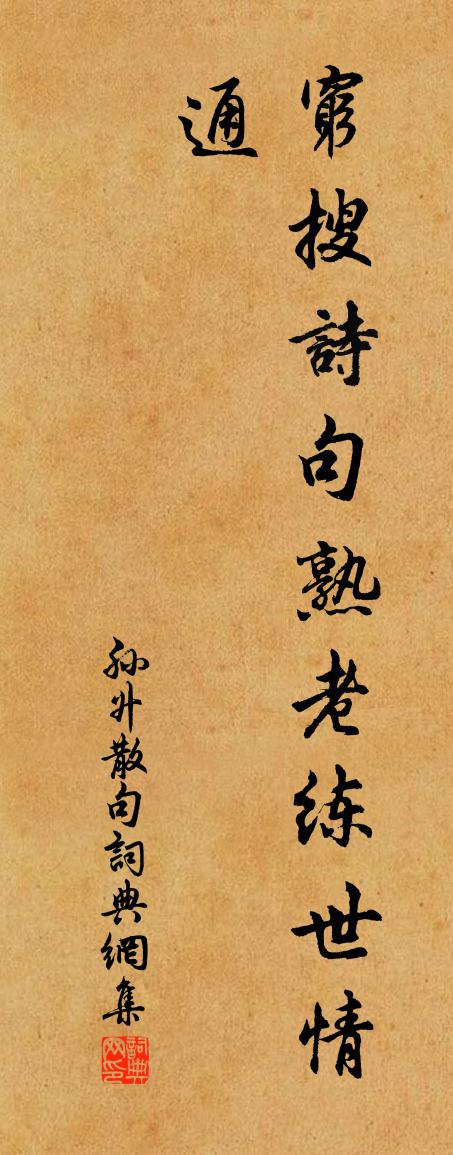 窮搜詩句熟老練世情
通
孙升散句詞典網集
詞典
网印